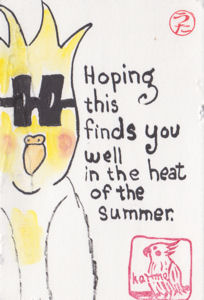 うた
Hoping
this
finds you
well
in the heat
of the
summer.